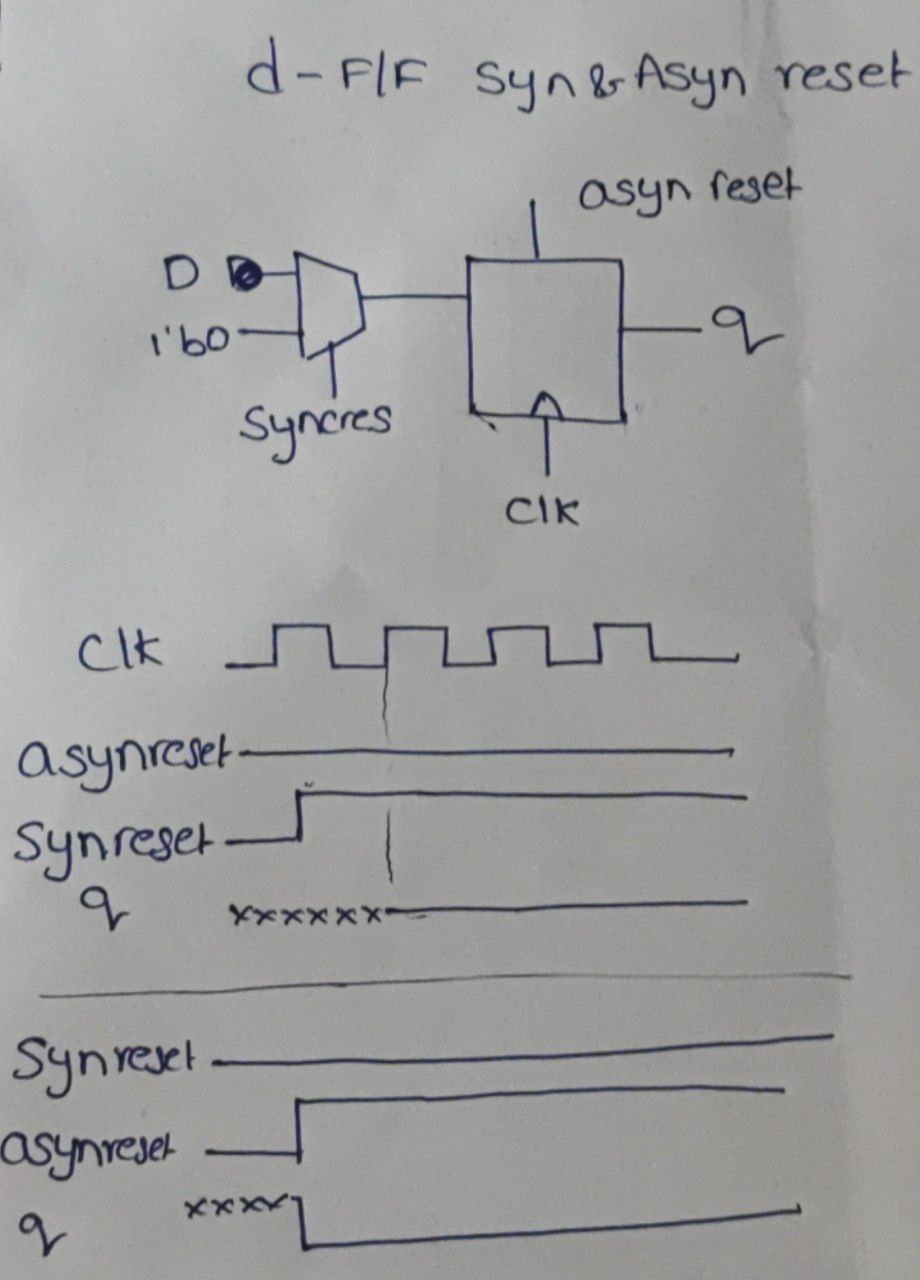 d-F/F Syn & Asyn reset
asyn reset
D
1'b0
Syncres
q
Clk
Clk
asynreset
Synreset
q xxxxxx
Synreset
asynreset
xxxx
q